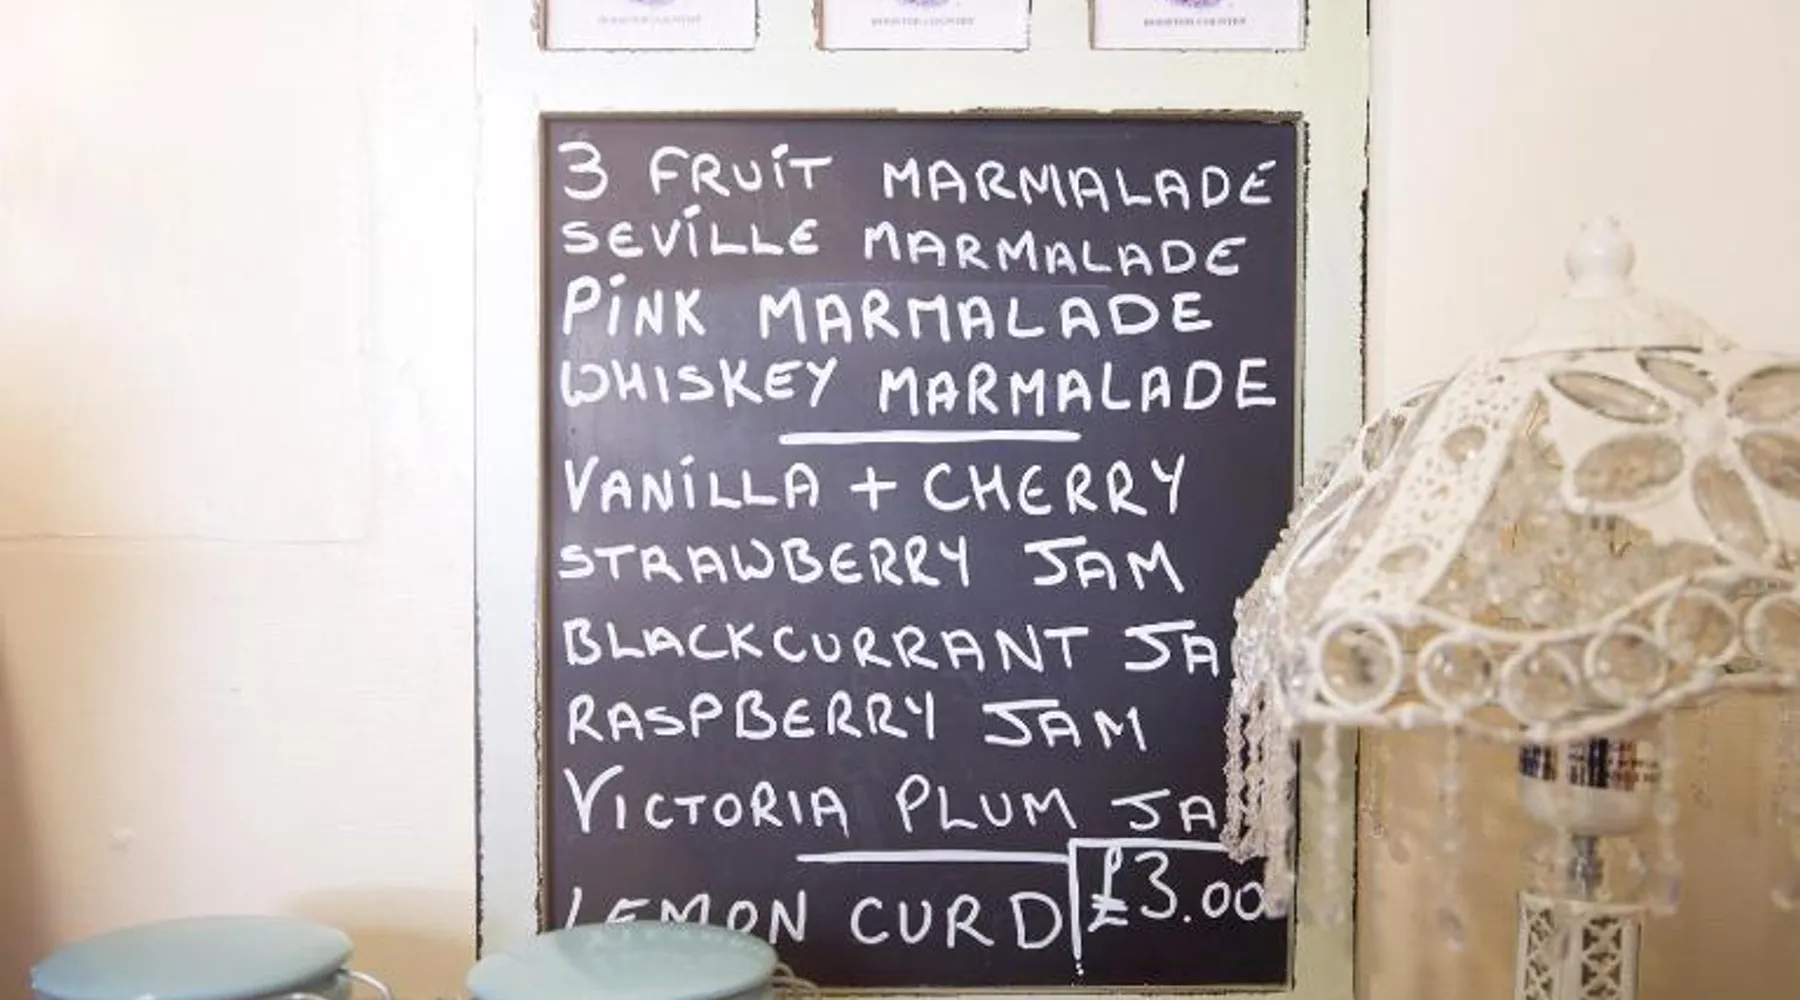 3 FRUIT MARMALADE
SEVILLE MARMALADE
PINK MARMALADE
WHISKEY MARMALADE
VANILLA + CHERRY
STRAWBERRY JAM
BLACKCURRANT JA
RASPBERRY JAM
VICTORIA PLUM JA
LEMON CURD £3.00